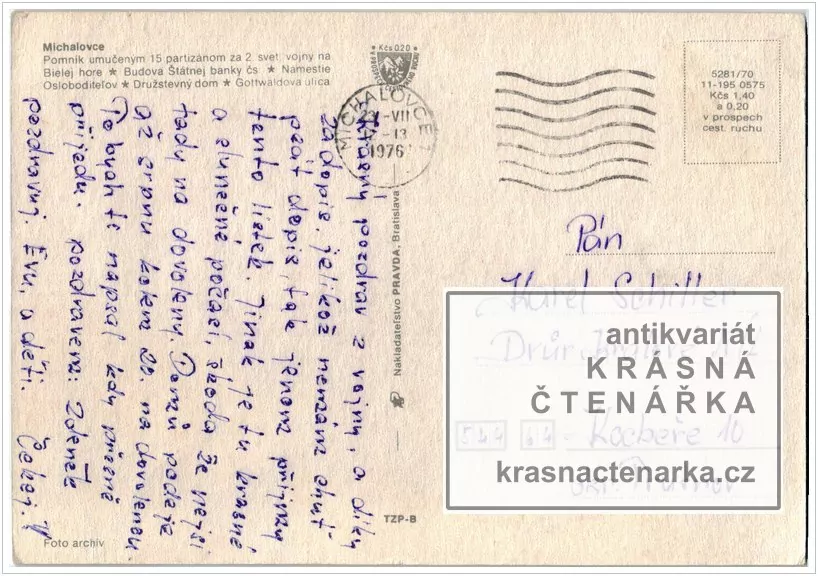 Michalovce
Pomník umučeným 15 partizánom za 2. svet. vojny na
Bielej hore ★ Budova Štátnej banky čs ★ Námestie
Osloboditeľov ★ Družstevný dom ★ Gottwaldova ulica
Kčs 0,20
MICHALOVCE 1
23. VII
-13
1976
5281/70
11-195 0575
Kčs 1,40
a 0,20
v prospech
cest. ruchu
Krásný pozdrav z vojny, a díky
za dopis, jelikož nemám chuť
psát dopis, tak jenom přijmy
tento lístek. Jinak je tu krásně
a slunečné počasí, škoda že nejsi
tady na dovoleny. Domů pojedu
až srpnu kolem 20. na dovolenou.
To bych ti napsal kdy přesně
přijedu. pozdravem: Zdeněk
pozdravuj. Evu, a děti. Čekej.
Nakladateľstvo PRAVDA, Bratislava
TZP-B
Foto archív
Pán
Karel Schiller
antikvariát
KRÁSNÁ
ČTENÁŘKA
544 64 - Kocbeře 10
krasnactenarka.cz